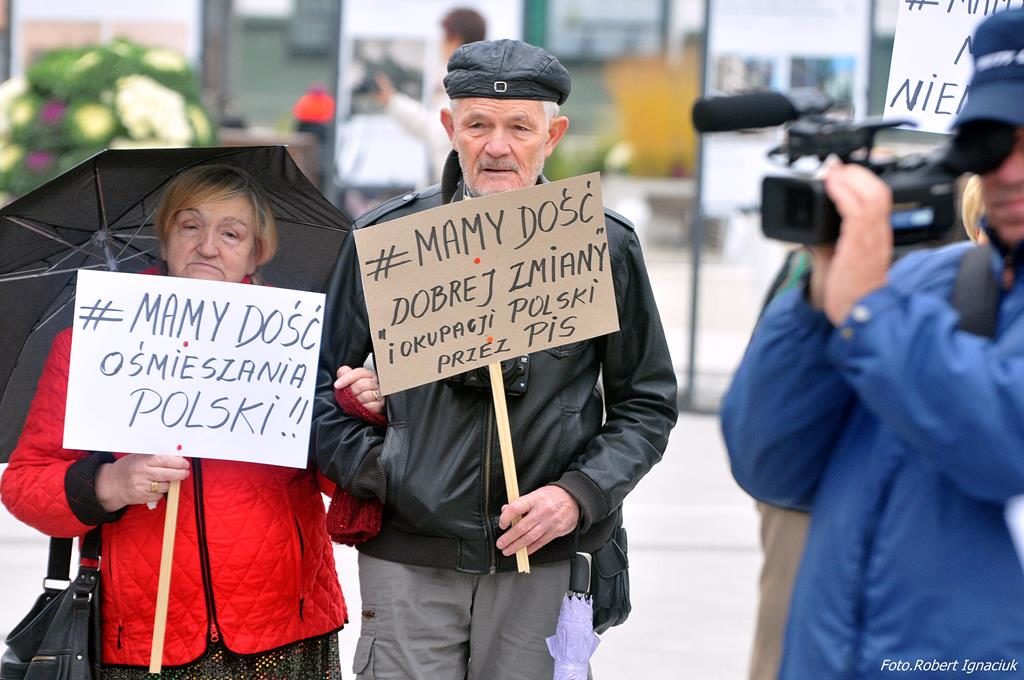 # MAMY DOŚĆ
OŚMIESZANIA
POLSKI!!
# MAMY DOŚĆ
"DOBREJ ZMIANY"
"I OKUPACJI POLSKI
PRZEZ PIS
# MAMY
Foto.Robert Ignaciuk